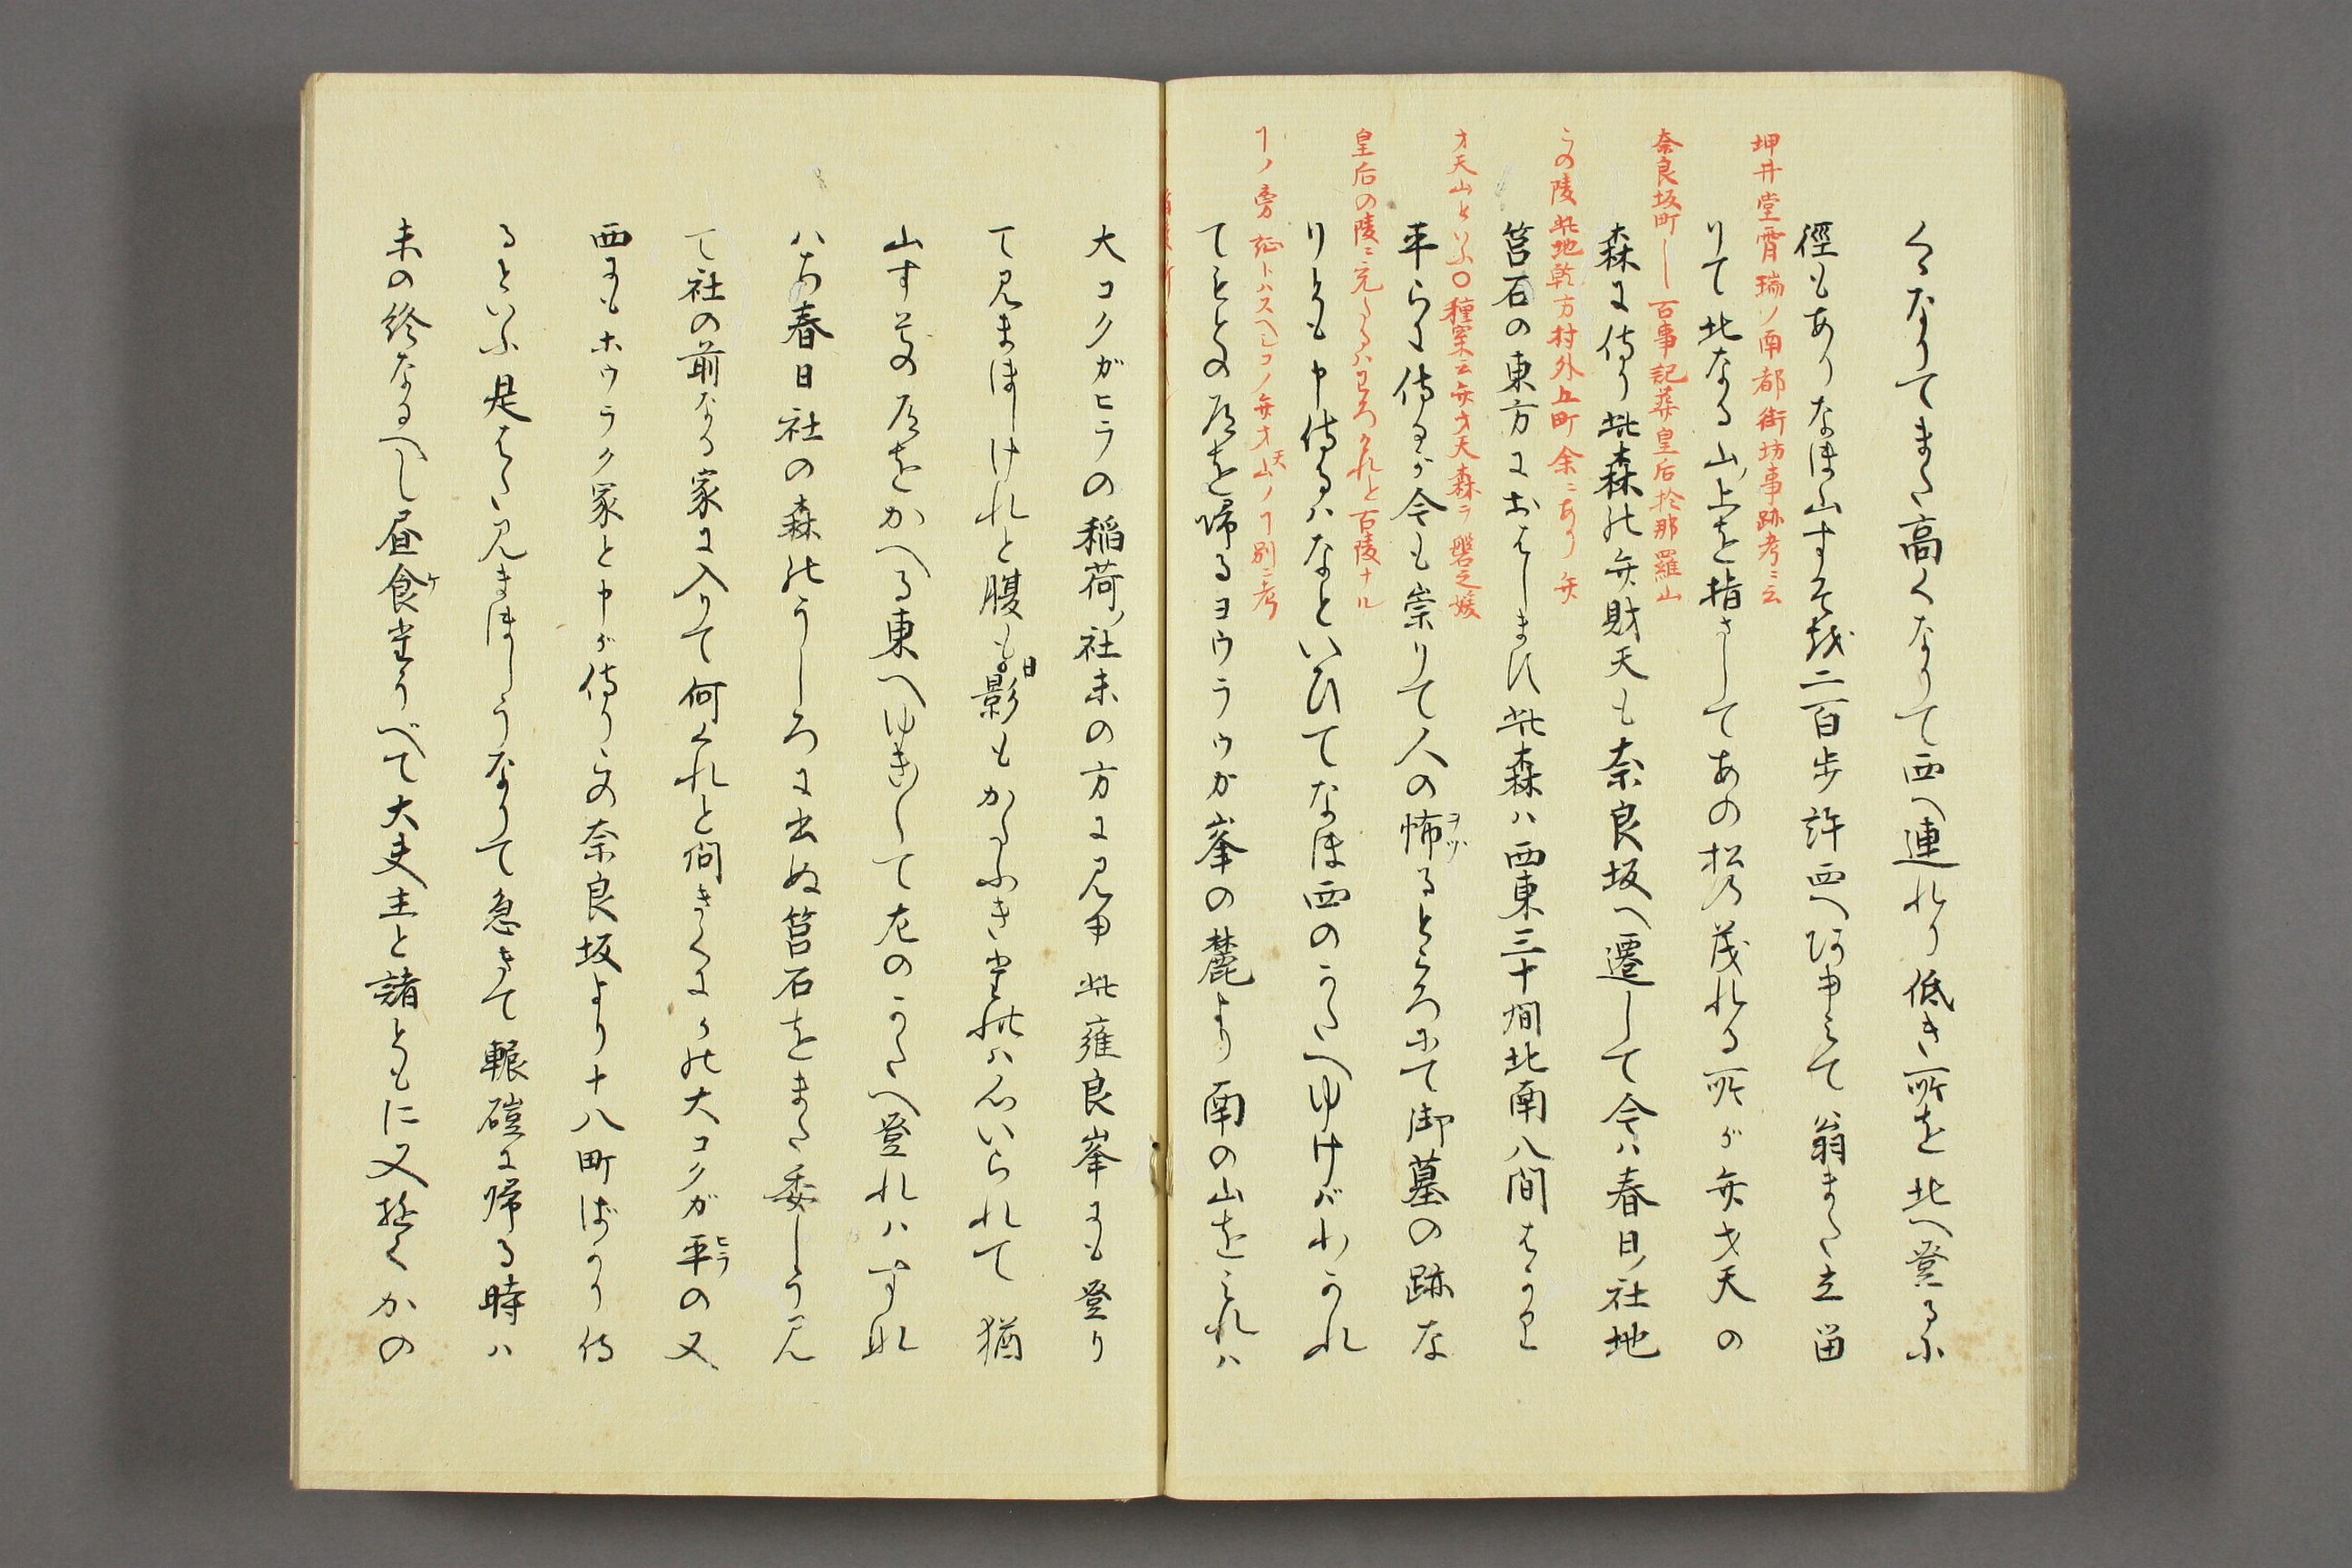 くなりてまた高くなりて西へ連れり低き所を北へ登るに
坤井堂霄瑞ノ南都街坊事跡考ニ云
徑もありなほ山すそ越二百歩許西へ行申して翁また立留
りて北なる山ノ上を指さしてあの松乃茂れる所が弁才天の
奈良坂町一百事記葬皇后於那羅山
森に侍り此森の弁財天も奈良坂へ遷して今ハ春日ノ社地
この陵此地乾方村外五町余ニあり弁
筥石の東方におはしまに此森ハ西東三十間北南八間はかり
才天山といふ〇種案云弁才天森ヲ磐之媛
平らに侍るが今も崇りて人の怖るところにて御墓の跡な
皇后の陵ニ充たるハわろけれと古陵ナル
りとも申侍るハなといひてなほ西のかたへゆけばわかれ
てもとの道を帰るヨウラウが峯の麓より南の山をこれハ
大コクガヒラの稲荷ノ社未の方に見申此雍良峯にも登り
て見まほしけれと腹も日影もかたふき堂れハ心いられて猶
山すその道をかへる東へゆきして左のかたへ登れハすれ
ハ春日社の森のうしろに出ぬ筥石をまた委しう見
て社の前なる家に入りて何くれと問きくにかの大コクガ平の又
西にもホウラク家と申が侍りこの奈良坂より十八町ばかり侍
るといふ是はた見まほしうなりて急きて輾磑に帰る時ハ
未の終なるへし昼食たうべて大夫主と諸ともに又遊くかの